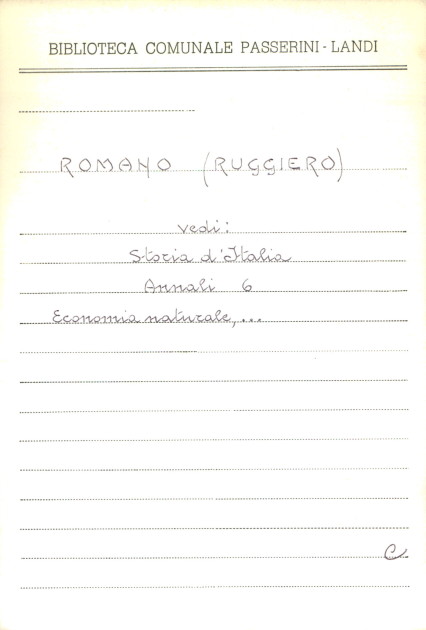 BIBLIOTECA COMUNALE PASSERINI - LANDI
ROMANO (RUGGIERO)
vedi:
Storia d'Italia
Annali 6
Economia naturale,...
C